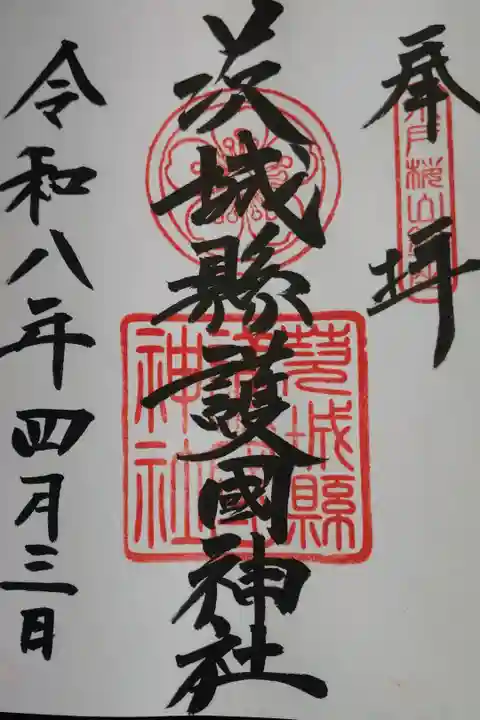 奉拝
茨城縣護國神社
令和八年四月三日
茨城縣
護國
神社